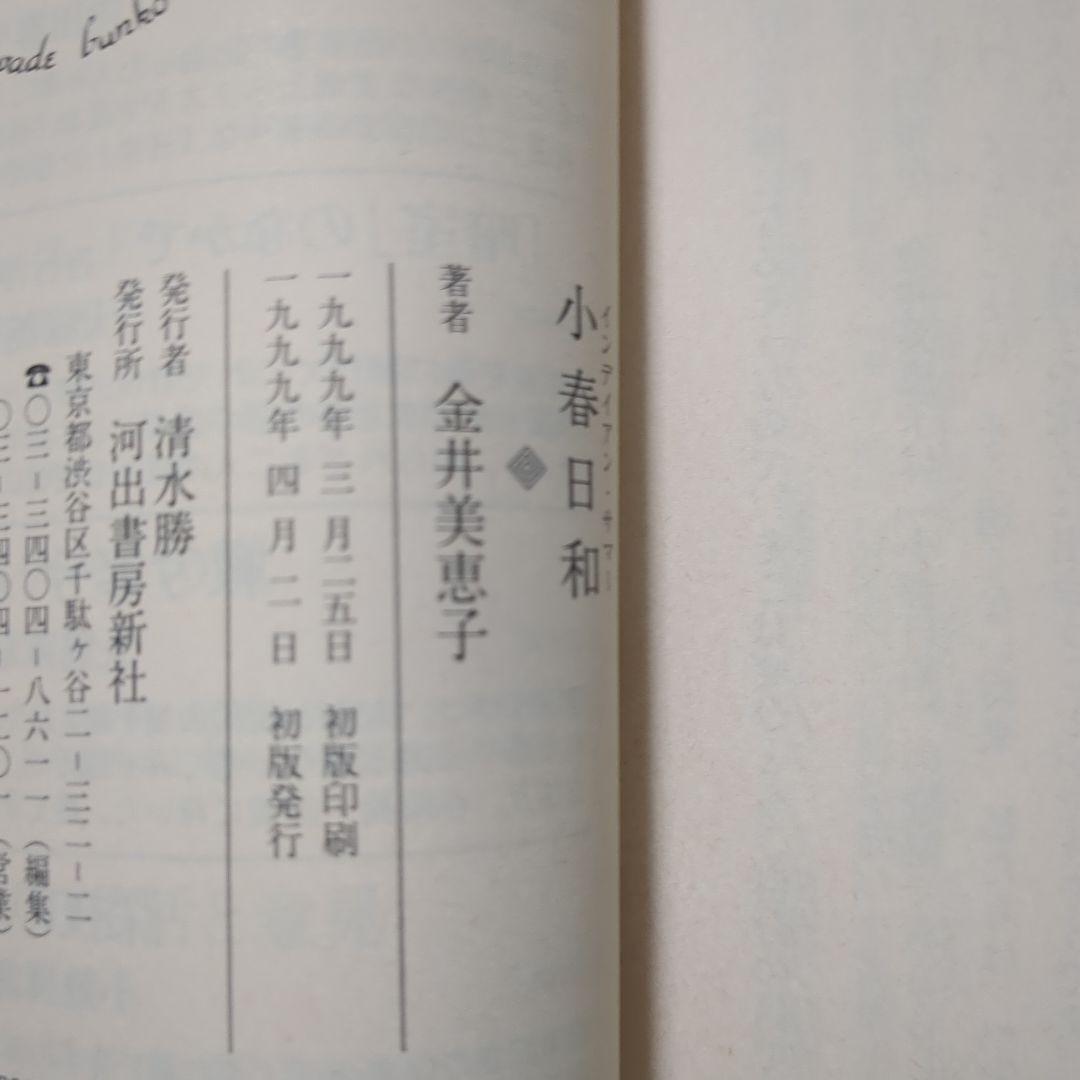 小春日和
インディアン・サマー
著者 金井美恵子
一九九九年 三 月二五日 初版印刷
一九九九年 四 月 二 日 初版発行
発行者 清水勝
発行所 河出書房新社
東京都渋谷区千駄ヶ谷二−三二−二
☎〇三−三四〇四−八六一一(編集)
〇三−三四〇四−一二〇一(営業)
bunko